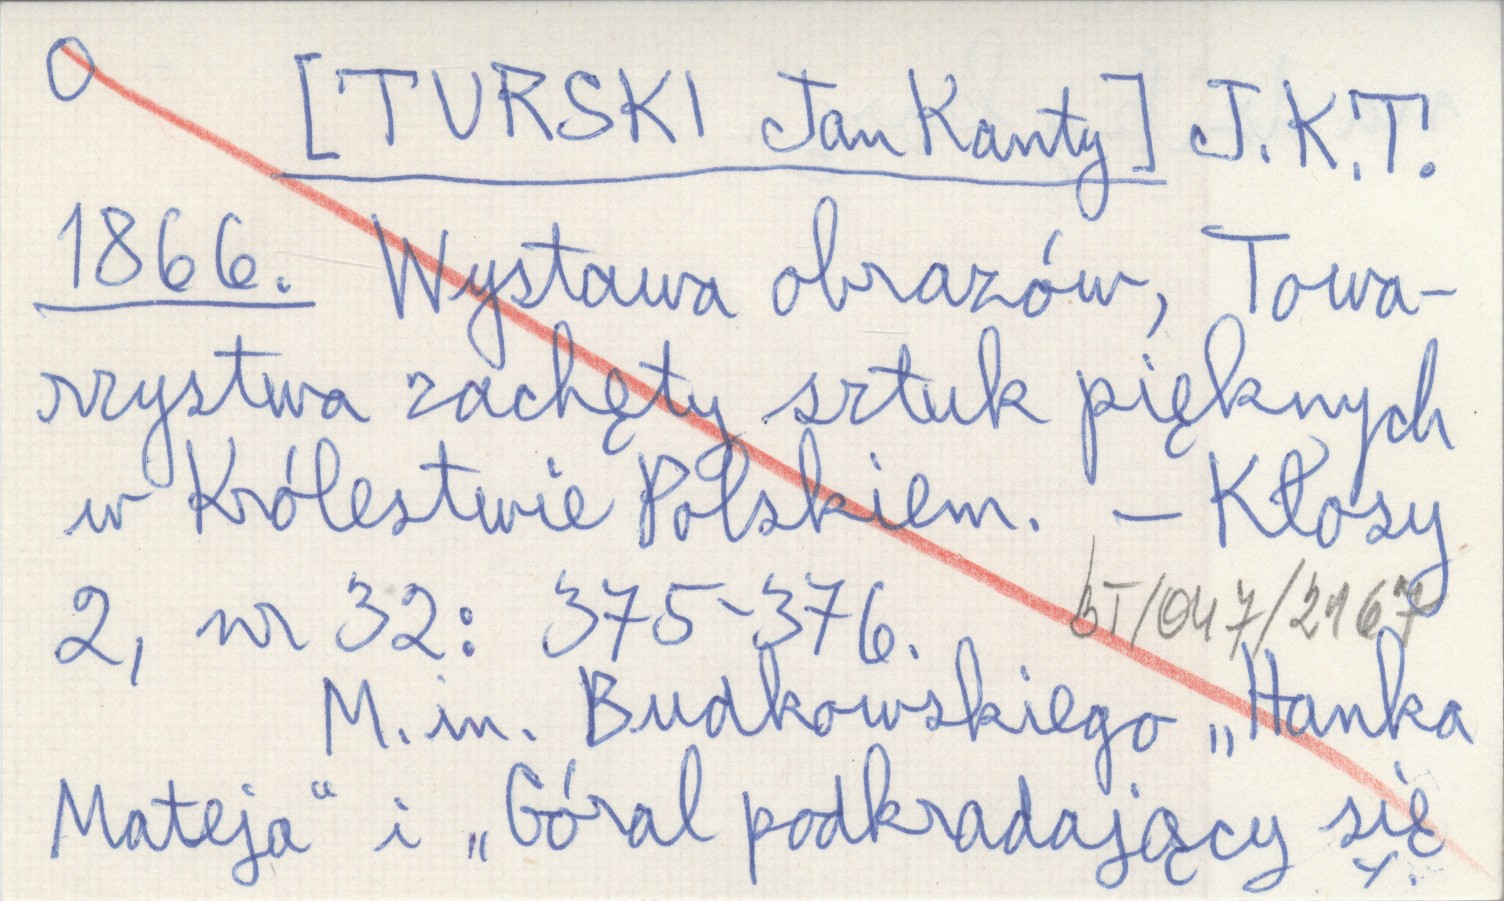 O [TURSKI Jan Kanty] J.K.T.
1866. Wystawa obrazów, Towa-
rzystwa zachęty sztuk pięknych
w Królestwie Polskiem. – Kłosy
2, nr 32: 375-376.
bI/047/2167
M.in. Budkowskiego „Hanka
Mateja" i „Góral podkradający się
v.